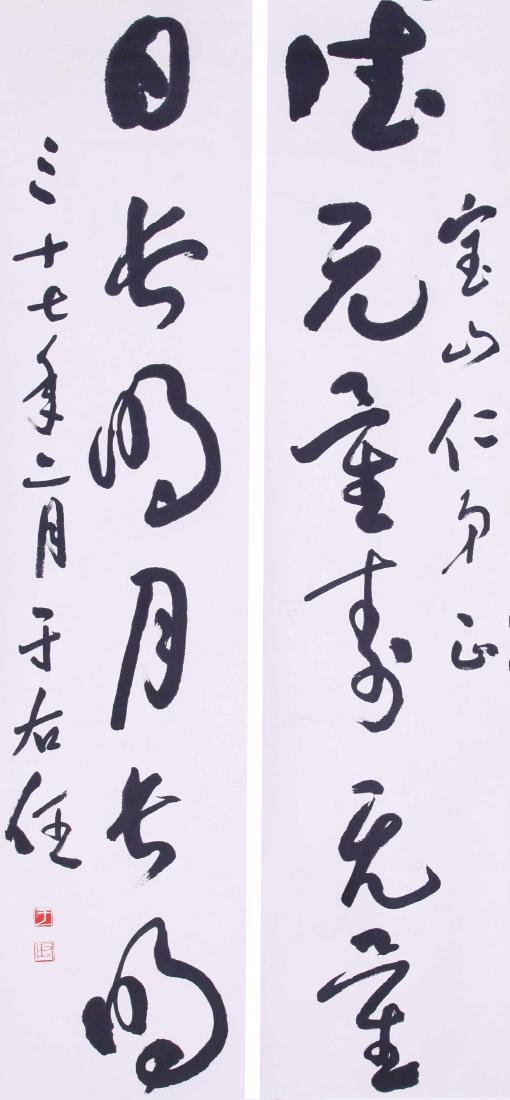 宝山仁弟正
德无量寿无量
日长明月长明
三十七年二月于右任